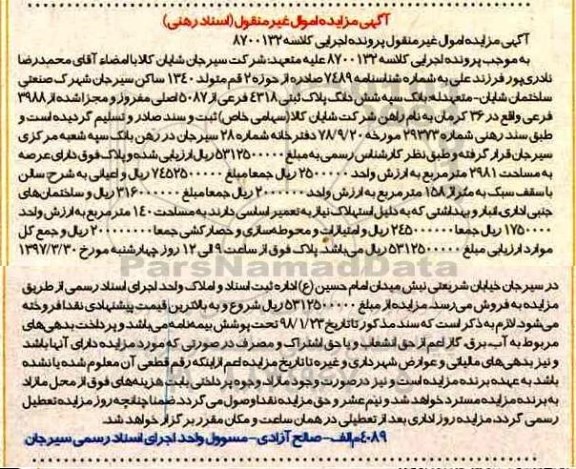 آگهی مزایده اموال غیر منقول (اسناد رهنی)
آگهی مزایده اموال غیر منقول پرونده اجرایی کلاسه ۸۷۰۰۱۳۲
به موجب پرونده اجرایی کلاسه ۸۷۰۰۱۳۲ علیه متعهد: شرکت سیرجان شایان کالا با امضاء آقای محمدرضا
نادری پور فرزند علی به شماره شناسنامه ۷۴۸۹ صادره از حوزه ۲ قم متولد ۱۳۴۰ ساکن سیرجان شهرک صنعتی
ساختمان شایان- متعهدله: بانک سپه شش دانگ پلاک ثبتی ۴۳۱۸ فرعی از ۵۰۸۷ اصلی مفروز و مجزا شده از ۳۹۸۸
فرعی واقع در ۳۶ کرمان به نام راهن شرکت شایان کالا (سهامی خاص) ثبت و سند صادر و تسلیم گردیده است و
طبق سند رهنی شماره ۲۹۳۷۳ مورخه ۷۸/۹/۲۰ دفترخانه شماره ۲۸ سیرجان در رهن بانک سپه شعبه مرکزی
سیرجان قرار گرفته و طبق نظر کارشناس رسمی به مبلغ ۵۳۱۲۵۰۰۰۰۰ ریال ارزیابی شده و پلاک فوق دارای عرصه
به مساحت ۲۹۸۱ متر مربع به ارزش واحد ۲۵۰۰۰۰۰ ریال جمعا مبلغ ۷۴۵۲۵۰۰۰۰۰ ریال و اعیانی به شرح سالن
با سقف سبک به متراژ ۱۵۸ متر مربع به ارزش واحد ۲۰۰۰۰۰۰ ریال جمعا مبلغ ۳۱۶۰۰۰۰۰۰ ریال و ساختمان های
جنبی اداری، انبار و بهداشتی که به دلیل استهلاک نیاز به تعمیر اساسی دارند به مساحت ۱۴۰ متر مربع به ارزش واحد
۱۷۵۰۰۰۰ ریال جمعا ۲۴۵۰۰۰۰۰۰ ریال و امتیازات و محوطه سازی و حصارکشی جمعا ۲۰۰۰۰۰۰۰۰ ریال و جمع کل
موارد ارزیابی مبلغ ۵۳۱۲۵۰۰۰۰۰ ریال می باشد. پلاک فوق از ساعت ۹ الی ۱۲ روز چهارشنبه مورخ ۱۳۹۷/۳/۳۰
در سیرجان خیابان شریعتی نبش میدان امام حسین (ع) اداره ثبت اسناد و املاک واحد اجرای اسناد رسمی از طریق
مزایده به فروش می رسد. مزایده از مبلغ ۵۳۱۲۵۰۰۰۰۰ ریال شروع و به بالاترین قیمت پیشنهادی نقدا فروخته
می شود. لازم به ذکر است که سند مذکور تا تاریخ ۹۸/۱/۲۳ تحت پوشش بیمه نامه می باشد و پرداخت بدهی های
مربوط به آب، برق، گاز اعم از حق انشعاب و یا حق اشتراک و مصرف در صورتی که مورد مزایده دارای آنها باشد
و نیز بدهی های مالیاتی و عوارض شهرداری و غیره تا تاریخ مزایده اعم از اینکه رقم قطعی آن معلوم شده یا نشده
باشد به عهده برنده مزایده است و نیز در صورت وجود مازاد وجوه پرداختی بابت هزینه های فوق از محل مازاد
به برنده مزایده مسترد خواهد شد و نیم عشر و حق مزایده نقدا وصول می گردد. ضمنا چنانچه روز مزایده تعطیل
رسمی گردد، مزایده روز اداری بعد از تعطیلی در همان ساعت و مکان مقرر برگزار خواهد شد.
۴۰۸۹م الف- صالح آزادی- مسوول واحد اجرای اسناد رسمی سیرجان
ParsNamadData